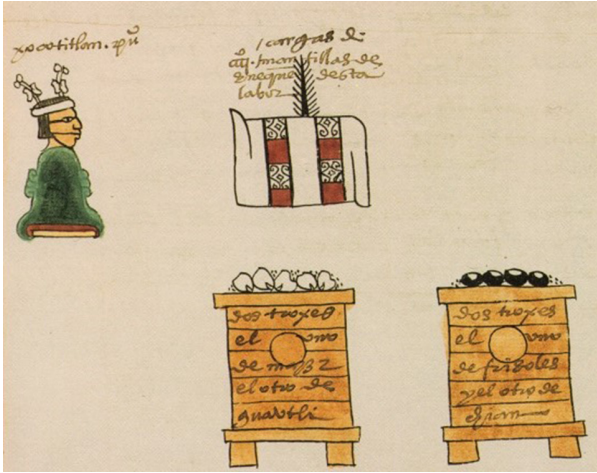 xocotitlan. puº
/ cargas de
mantillas de
eneque desta
labor
dos troxes
el uno
de maiz
el otro de
guautli
dos troxes
el uno
de frisoles
y el otro de
chian